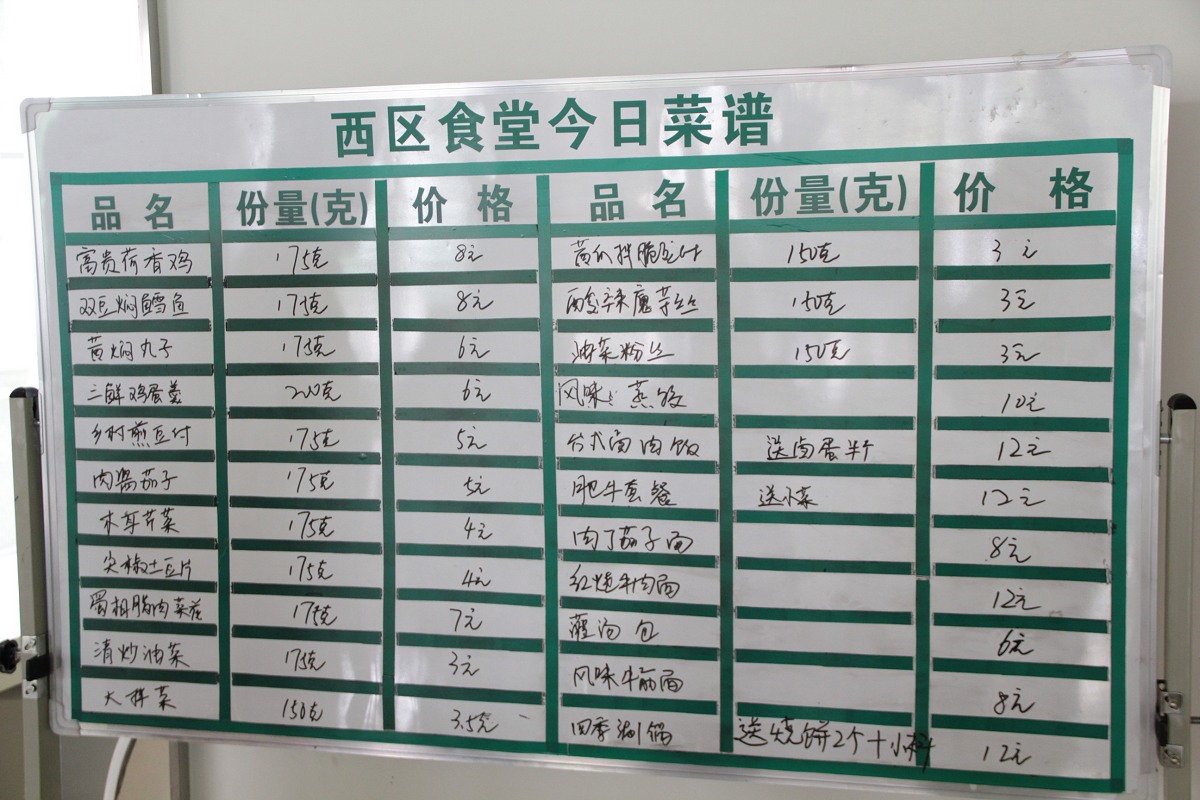 西区食堂今日菜谱
品名 份量(克) 价格 品名 份量(克) 价格
高贵荷香鸡 175克 8元 黄瓜拌脆豆付 150克 3元
双豆焖鳕鱼 175克 8元 酸辣魔芋丝 150克 3元
黄焖丸子 175克 6元 油菜粉丝 150克 3元
三鲜鸡蛋羹 200克 6元 风味蒸饺 10元
乡村煎豆付 175克 5元 台式卤肉饭 送卤蛋半个 12元
肉酱茄子 175克 5元 肥牛套餐 送小菜 12元
木耳芹菜 175克 4元 肉丁茄子面 8元
尖椒土豆片 175克 4元 红烧牛肉面 12元
腊肉菜花 175克 7元 灌汤包 6元
清炒油菜 175克 3元 风味牛筋面 8元
大拌菜 150克 3.5元 四季涮锅 送烧饼2个+小料 12元